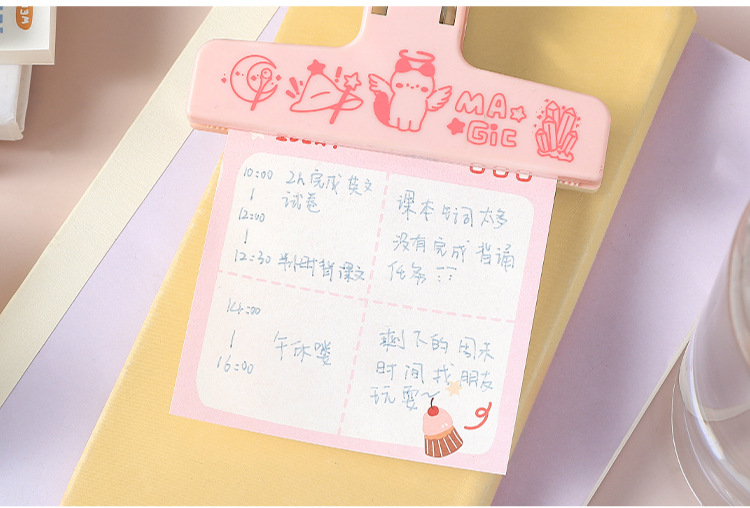 MA
Gic
10:00
2h完成英文
试卷
12:00
12:30
半小时背课文
课本生词太多
没有完成背诵
任务
14:00
午休喽
16:00
剩下的周末
时间找朋友
玩耍~